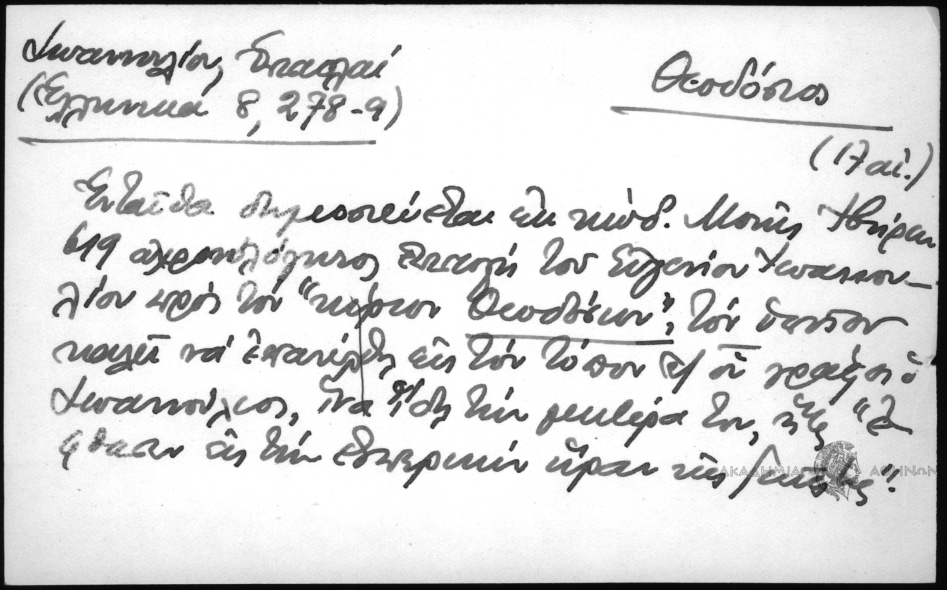 Ιωαννουλίου, Ἐπιστολαί
(Ἑλληνικά 8, 278-9)
Θεοδόσιος
(17 αἰ.)
Ἐνταῦθα δημοσιεύεται ἐκ κώδ. Μονῆς Ἰβήρων
619 ἀχρονολόγητος ἐπιστολή τοῦ Εὐγενίου Ἰωαννου-
λίου πρός τόν "κύριον Θεοδόσιον", τόν ὁποῖον
καλεῖ νά ἐπανέλθῃ εἰς τόν τόπον ἀφ' οὗ γράφει ὁ
Ἰωαννούλιος, ἵνα ἴδῃ τήν μητέρα του, ἥτις "ἔ-
φθασεν εἰς τήν ἑσπερινήν ὥραν τῆς ζωῆς".
ΑΚΑΔΗΜΙΑ ΑΘΗΝΩΝ